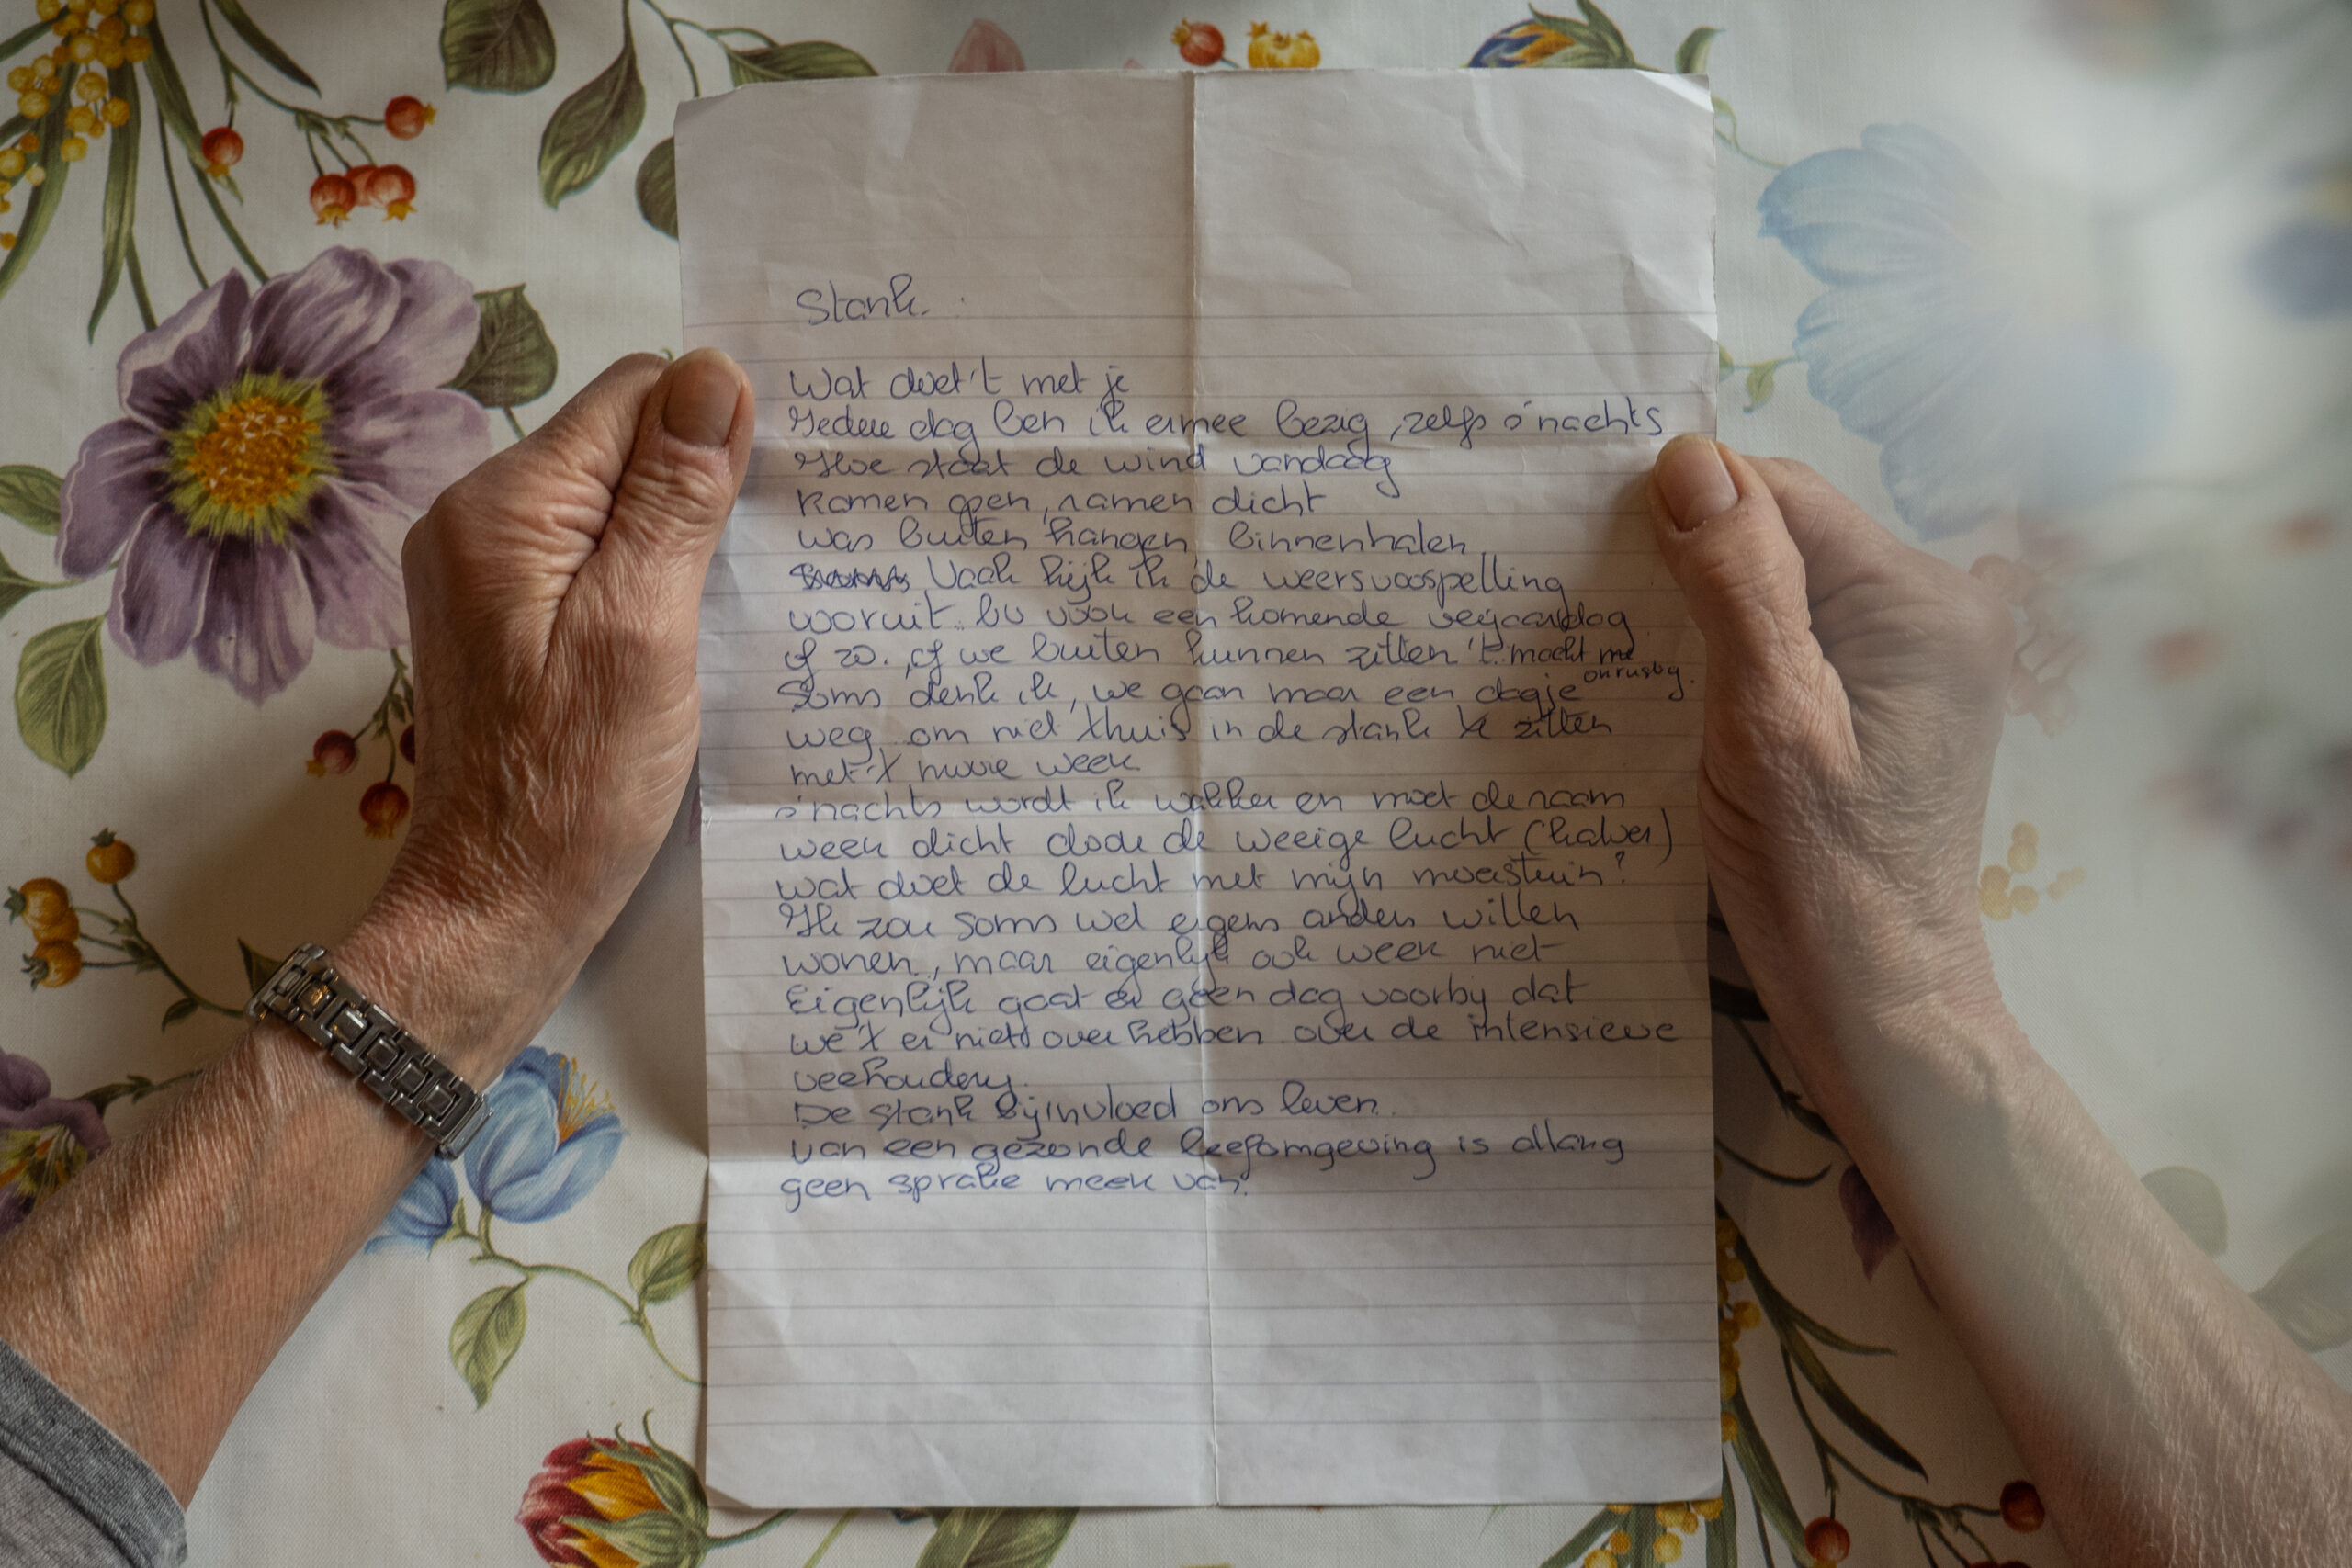 Stank.
Wat doet 't met je
Iedere dag ben ik ermee bezig, zelfs s'nachts
Hoe staat de wind vandaag
Ramen open, ramen dicht
was buiten hangen, binnenhalen
Vaak kijk ik de weersvoospelling
vooruit. bv voor een komende verjaardag
of zo., of we buiten kunnen zitten 't macht me onrustig.
Soms denk ik, we gaan maar een dagje
weg, om niet thuis in de stank te zitten
met 't mooie weer
s'nachts wordt ik wakker en moet de raam
weer dicht door de weeige lucht (kalver)
wat doet de lucht met mijn moestuin?
Ik zou soms wel ergens anders willen
wonen, maar eigenlijk ook weer niet
Eigenlijk gaat er geen dag voorbij dat
we 't er niet over hebben over de intensieve
veehouderij.
De stank bijinvloed ons leven.
van een gezonde leefomgeving is allang
geen sprake meer van.